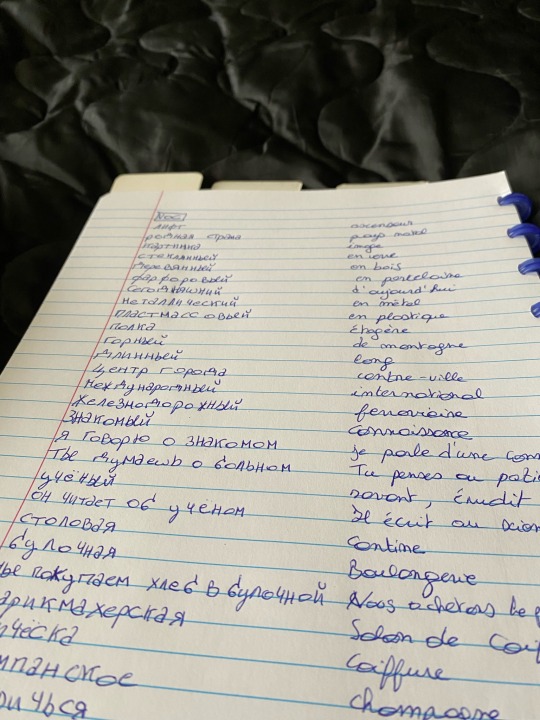 Voc
лифт ascenseur
родная страна pays natal
картинка image
стеклянный en verre
деревянный en bois
фарфоровый en porcelaine
сегодняшний d'aujourd'hui
металлический en métal
пластмассовый en plastique
полка étagère
горный de montagne
длинный long
центр города centre-ville
международный international
железнодорожный ferroviaire
знакомый connaissance
я говорю о знакомом je parle d'une conn
Ты думаешь о больном Tu penses au pati
учёный savant, érudit
он читает об учёном Il écrit au scien
столовая Cantine
булочная Boulangerie
ы покупаем хлеб в булочной Nous achetons le p
арикмахерская Salon de coif
ичёска Coiffure
мпанское champagne